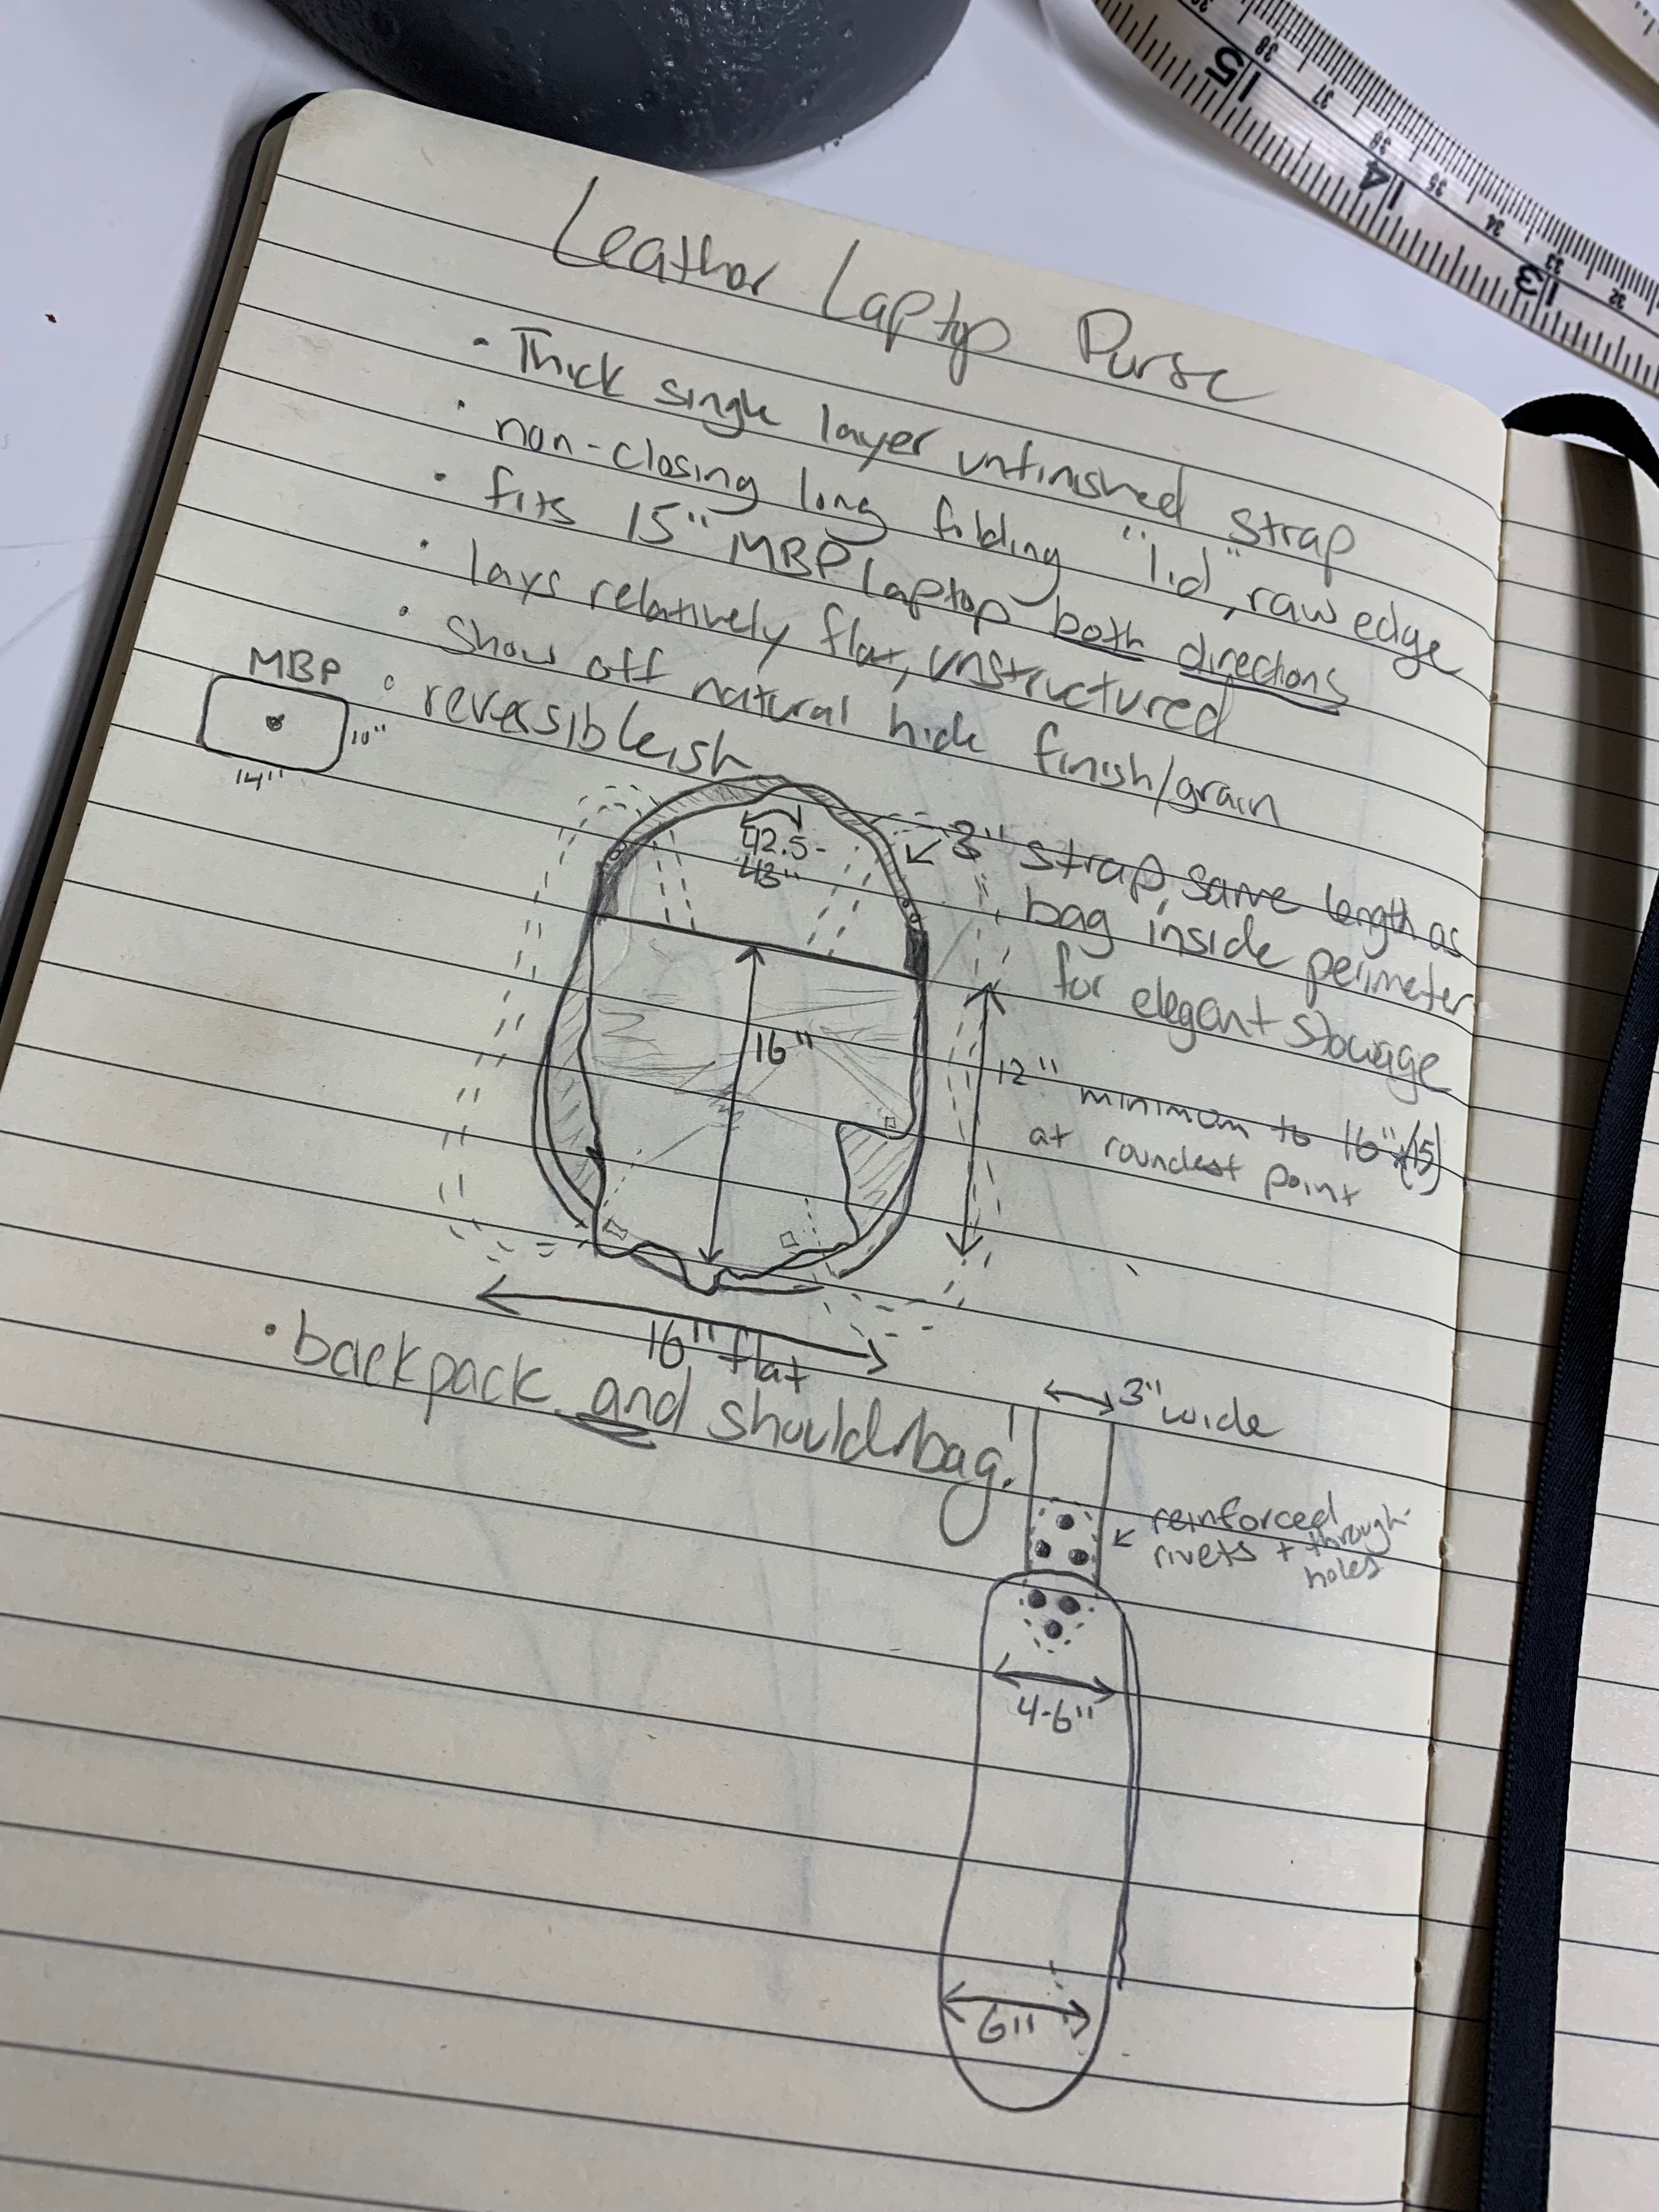 Leather Laptop Purse
• Thick single layer unfinished strap
• non-closing long folding "lid", raw edge
• fits 15" MBP laptop both directions
• lays relatively flat, unstructured
• Show off natural hide finish/grain
• reversibleish
MBP
10"
14"
42.5-
43"
3" strap, same length as
bag inside perimeter
for elegant stowage
16"
12" minimum to 16" (15)
at roundest point
16" flat
• backpack and shoulder bag!
3" wide
reinforced
rivets + through-
holes
4-6"
6"
15
14
13
38
37
36
35
34
33
32